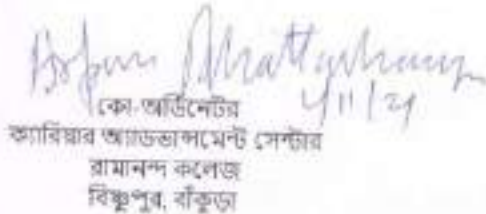 Bhattacharya
কো-অর্ডিনেটর
4/11/21
ক্যারিয়ার অ্যাডভান্সমেন্ট সেন্টার
রামানন্দ কলেজ
বিষ্ণুপুর, বাঁকুড়া